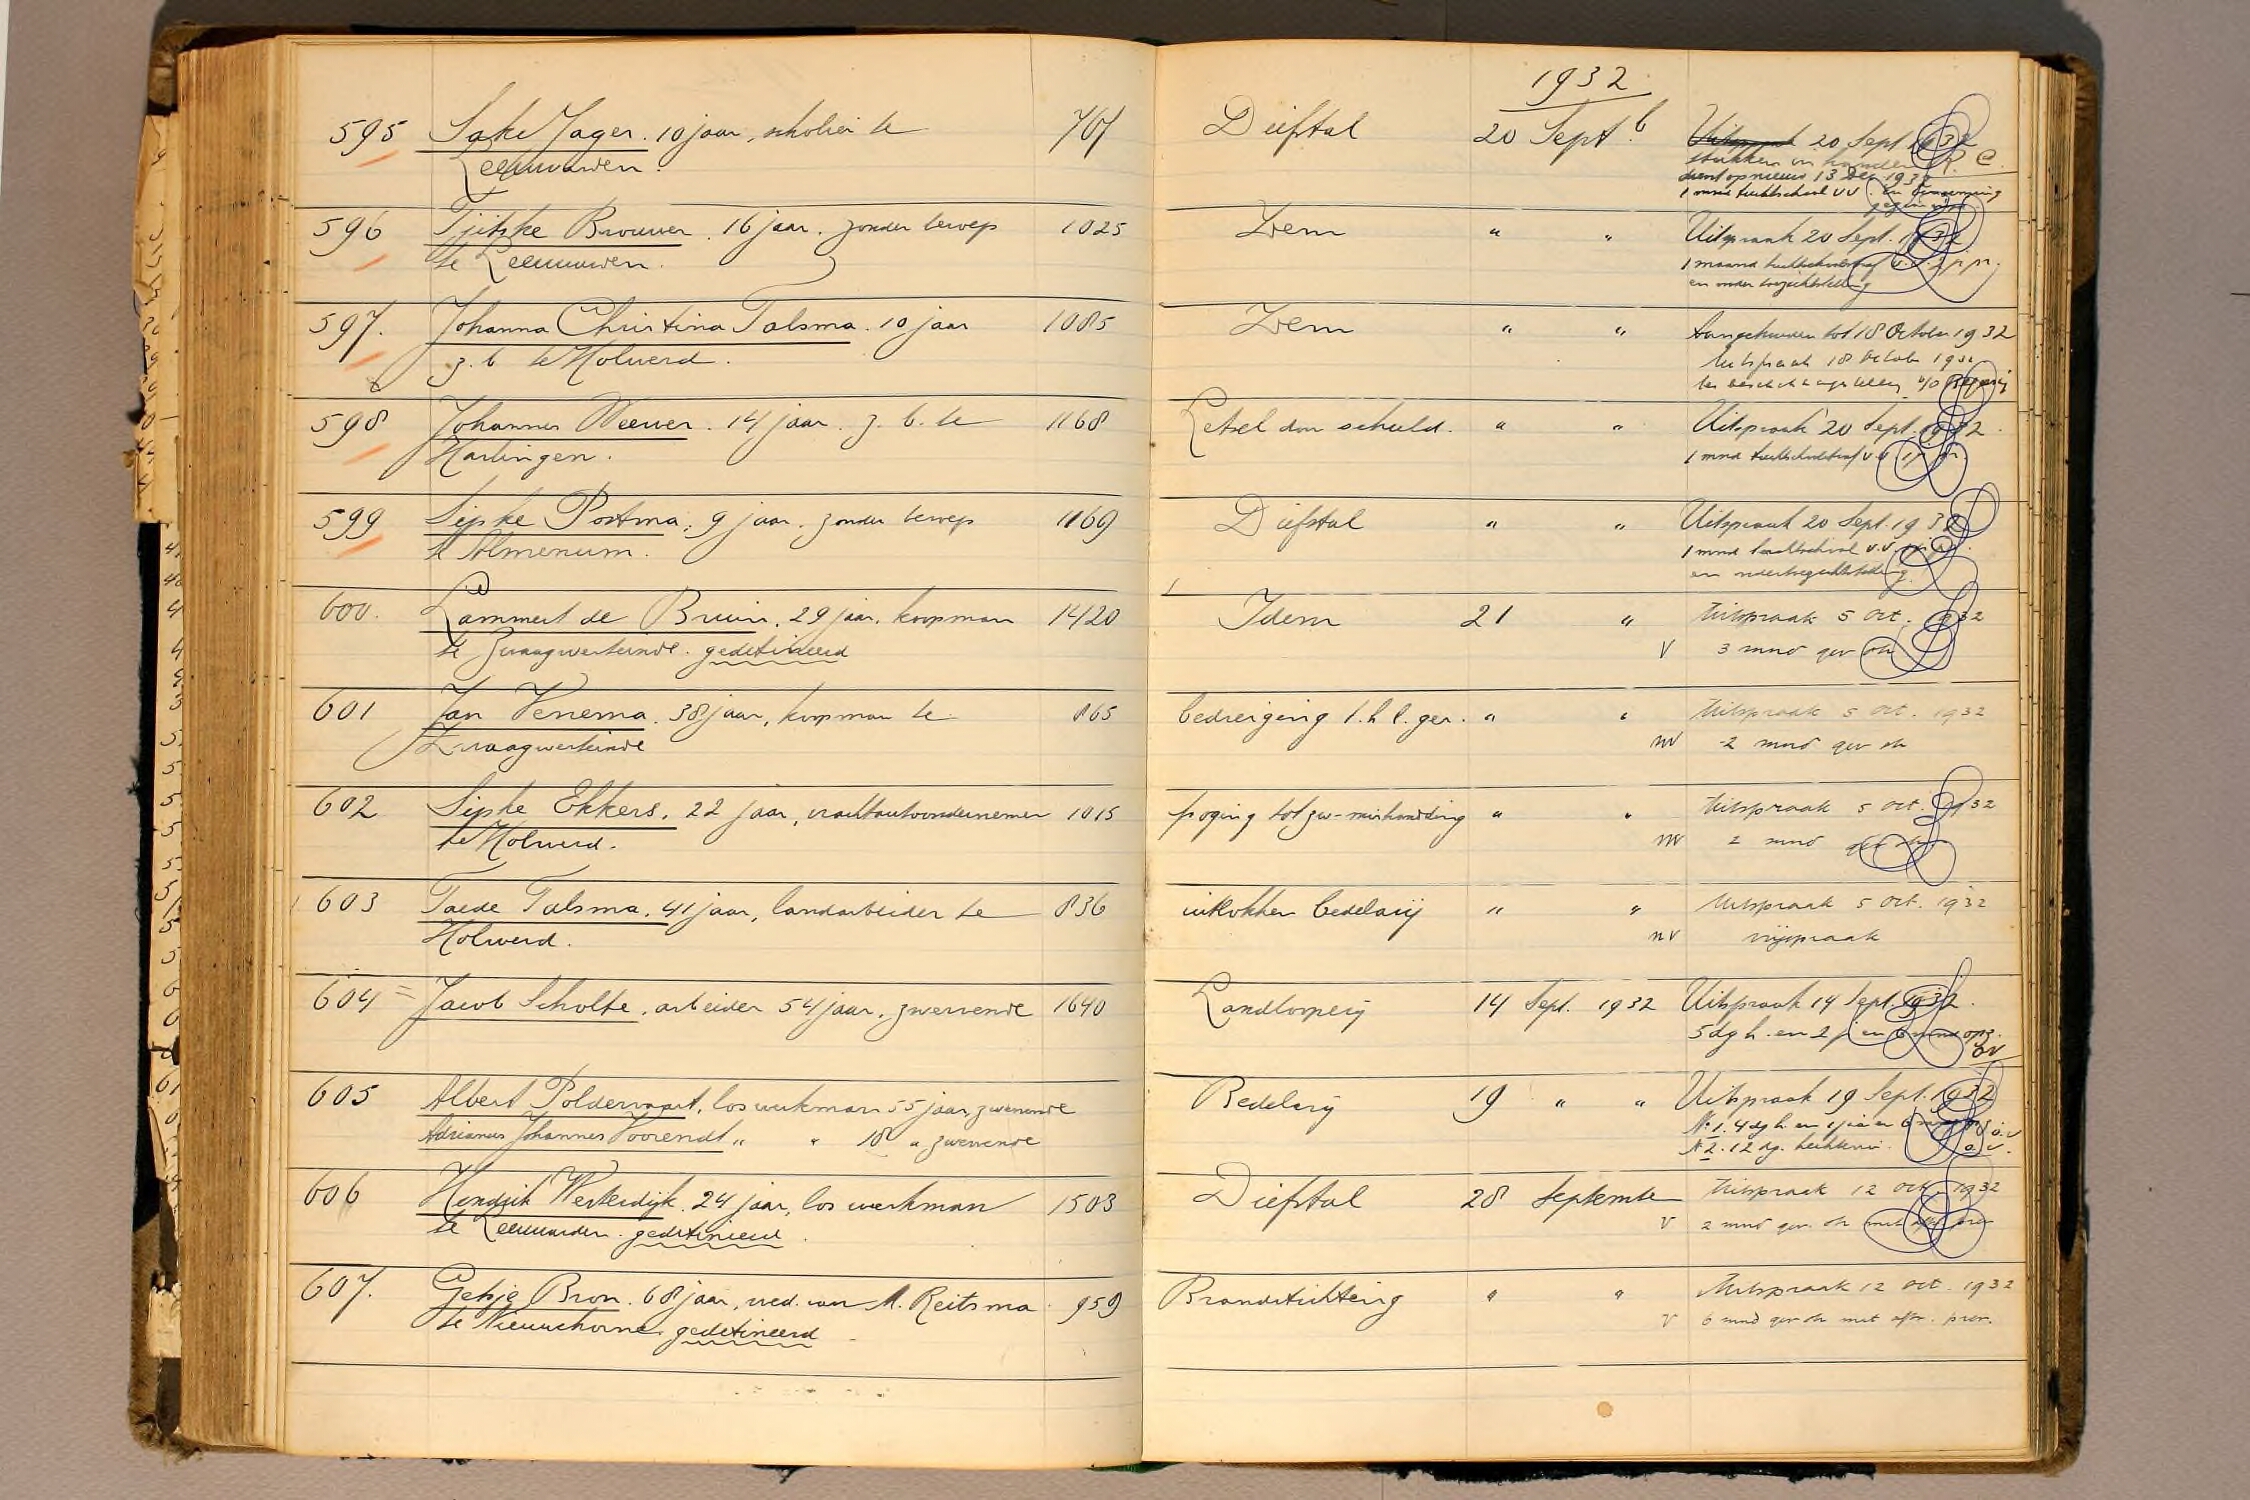 1932
595 Sake Jager. 10 jaar, scholier te 767 Diefstal 20 Sept. Uitspraak 20 Sept 1932
Leeuwarden. stukken in handen R. C.
dient opnieuw 13 Dec 1932
1 mnd tuchtschool VV
596 Tjitske Brouwer. 16 jaar. zonder beroep 1025 Idem " " Uitspraak 20 Sept. 1932
te Leeuwarden. 1 maand tuchtschoolstraf v.v. 2 j pr.
en onder toezichtstelling
597. Johanna Christina Talsma. 10 jaar 1085 Idem " " Aangehouden tot 18 October 1932
z. b. te Holwerd. Uitspraak 18 October 1932
ter beschikkingstelling v/d Regering
598 Johannes Weewer. 14 jaar. z. b. te 1168 Letsel door schuld. " " Uitspraak 20 Sept. 1932.
Harlingen. 1 mnd tuchtschoolstraf v.v. 1 j pr.
599 Sipke Postma, 9 jaar. zonder beroep 1169 Diefstal " " Uitspraak 20 Sept. 1932
te Almenum. 1 mnd tuchtschool v.v.
en ondertoezichtstelling.
600. Lammert de Bruin, 29 jaar, koopman 1420 Idem 21 " Uitspraak 5 Oct. 1932
te Zwaagwesteinde. gedetineerd V 3 mnd gev str
601 Jan Venema. 38 jaar, koopman te 865 bedreiging " " Uitspraak 5 Oct. 1932
Zwaagwesteinde nv 2 mnd gev str
602 Sipke Ekkers, 22 jaar, vrachtautoondernemer 1015 poging tot zw-mishandeling " " Uitspraak 5 Oct. 1932
te Holwerd. nv 2 mnd gev str
603 Taede Talsma, 41 jaar, landarbeider te 836 uitlokken bedelarij " " Uitspraak 5 Oct. 1932
Holwerd. nv vrijspraak
604 = Jacob Scholte, arbeider 54 jaar, zwervende 1640 Landlooperij 14 Sept. 1932 Uitspraak 14 Sept. 1932.
5 dg h. en 2 j en 6 mnd opz.
OV
605 Albert Poldervaart, los werkman 55 jaar, zwervende Bedelarij 19 " " Uitspraak 19 Sept. 1932
Adrianus Johannes Voorendt " " 18 " zwervende No. 1. 4 dg h. en 1 jaar en 6 mnd o.v
N 2. 12 dg. hechtenis. o.v.
606 Hendrik Westerdijk. 24 jaar, los werkman 1503 Diefstal 28 September Uitspraak 12 Oct. 1932
te Leeuwarden. gedetineerd. V 2 mnd gev. str met aftr prev
607. Gepje Bron. 68 jaar, wed. van A. Reitsma 959 Brandstichting " " Uitspraak 12 Oct. 1932
te Nieuwehorne gedetineerd V 6 mnd gev str met aftr. prev.